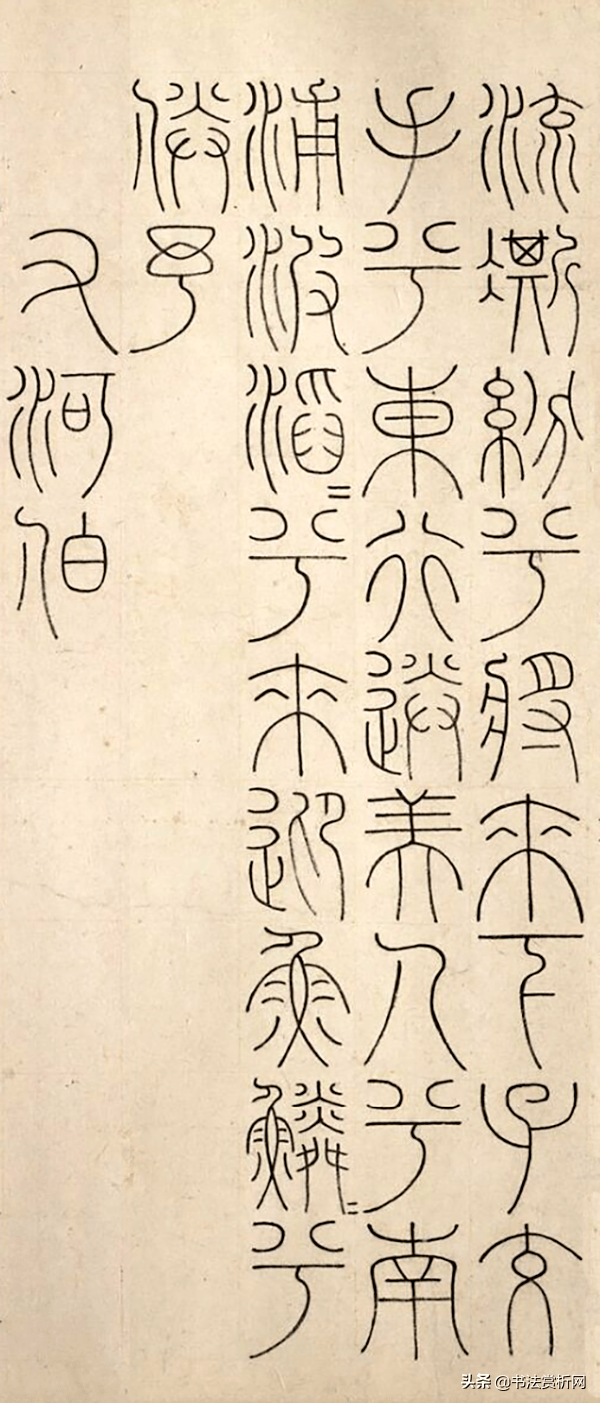 流澌紛兮將來下子交
手兮東行送美人兮南
浦波滔〻兮來迎魚鱗〻兮
㑞予
又河伯
头条 @书法赏析网